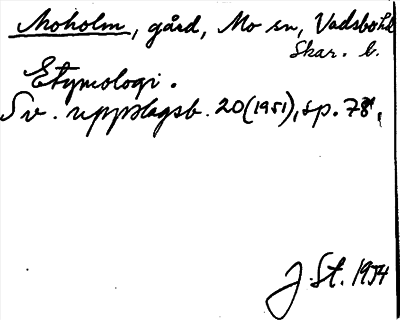 Moholm, gård, Mo sn, Vadsbo hd
Skar. l.
Etymologi.
Sv. uppslagsb. 20 (1951), sp. 78.
J. St. 1954